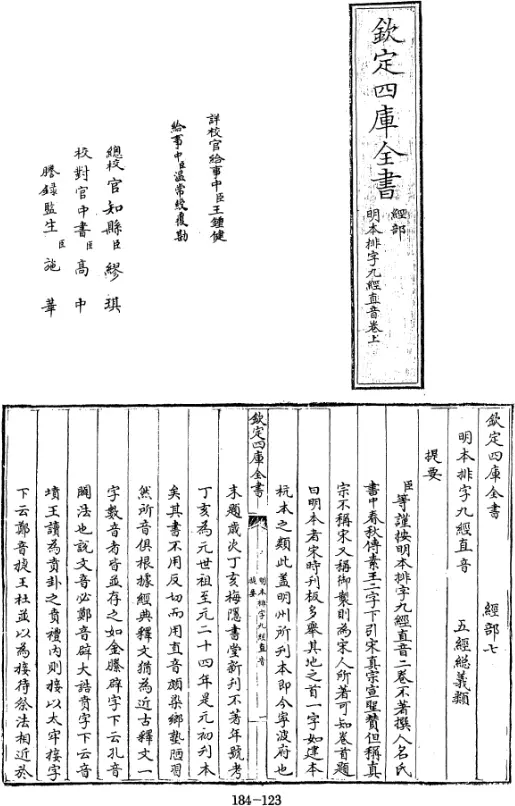 欽定四庫全書
經部
明本排字九經直音卷上
詳校官給事中臣王鍾健
給事中臣溫常綬覆勘
總校官知縣臣繆琪
校對官中書臣高中
謄錄監生臣施華
欽定四庫全書
經部七
明本排字九經直音
五經總義類
提要
臣等謹按明本排字九經直音二卷不著撰人名氏
書中春秋傳素王二字下引宋真宗宣聖贊但稱真
宗不稱宋又稱御製則為宋人所著可知卷首題
曰明本者宋時刊板多舉其地之首一字如建本
杭本之類此蓋明州所刊本即今寧波府也
欽定四庫全書
明本排字九經直音
提要
一
末題歲次丁亥梅隱書堂新刊不著年號考
丁亥為元世祖至元二十四年是元初刊本
矣其書不用反切而用直音頗染鄉塾陋習
然所音俱根據經典釋文猶為近古釋文一
字數音者皆並存之如金縢辟字下云孔音
闢法也說文音必鄭音辟大誥賁字下云音
墳王讀為賁卦之賁禮內則接以太牢接字
下云鄭音捷王杜並以為接待祭法相近於
184-123